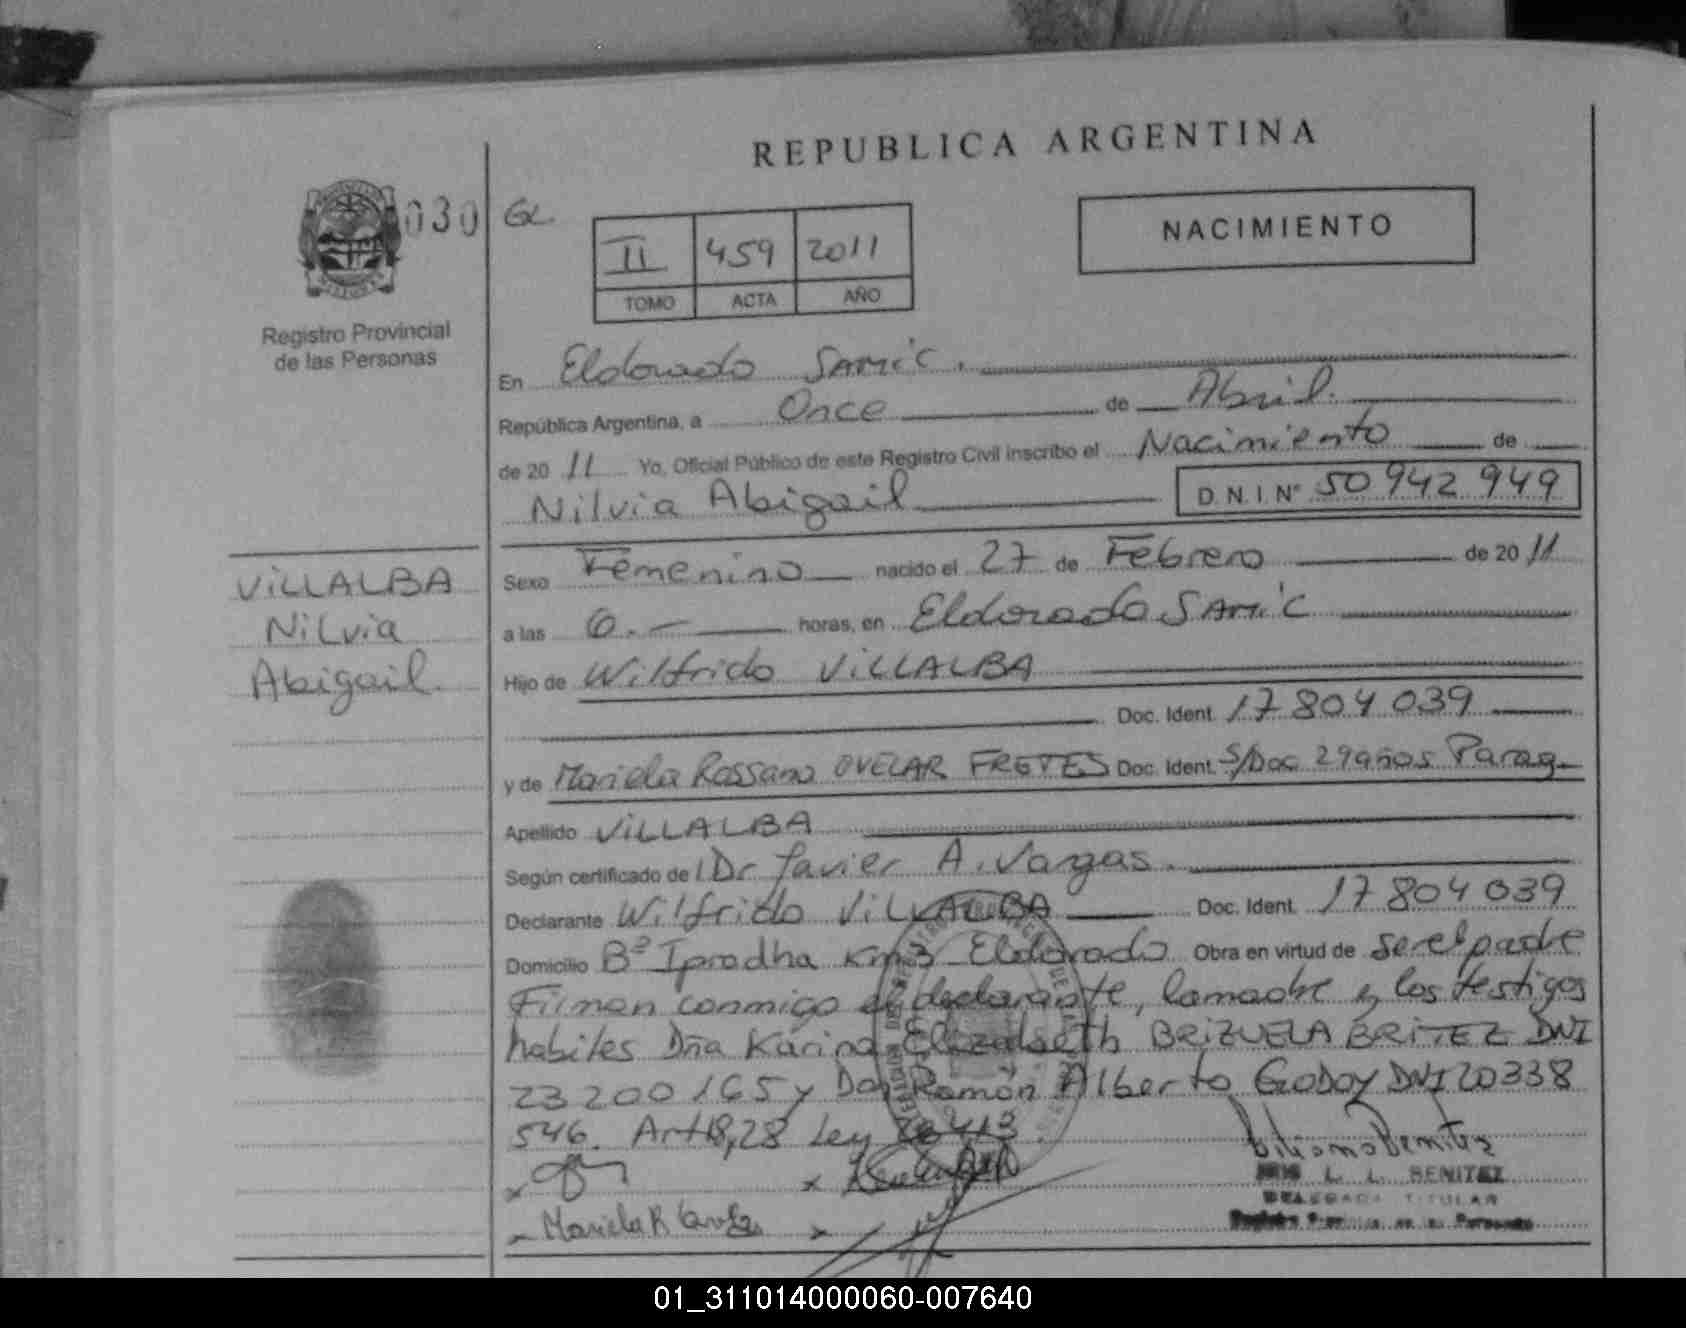 REPUBLICA ARGENTINA
030
GL.
NACIMIENTO
II 459 2011
TOMO ACTA AÑO
Registro Provincial
de las Personas
En Eldorado SAMIC.
República Argentina, a Once de Abril.
de 20 11 Yo, Oficial Público de este Registro Civil inscribo el Nacimiento de
Nilvia Abigail D.N.I. Nº 50 942 949
VILLALBA
Nilvia
Abigail.
Sexo Femenino nacido el 27 de Febrero de 20 11
a las 6.- horas, en Eldorado SAMIC
Hijo de Wilfrido VILLALBA
Doc. Ident. 17 804 039
y de Mariela Rossana OVELAR FRETES Doc. Ident. S/Doc 29años Parag-
Apellido VILLALBA
Según certificado de Dr Javier A. Vargas.
Declarante Wilfrido VILLALBA Doc. Ident. 17 804 039
Domicilio Bº Iprodha Km3 Eldorado Obra en virtud de ser el padre
Firman conmigo el declarante, la madre y los testigos
habiles Dña Karina Elizabeth BRIZUELA BRITEZ DNI
23 200 165 y Don Ramón Alberto GODOY DNI 20 338
546. Art 18,28 Ley 26413
L. L. BENITEZ
DELEGADA TITULAR
Mariela R
01_311014000060-007640